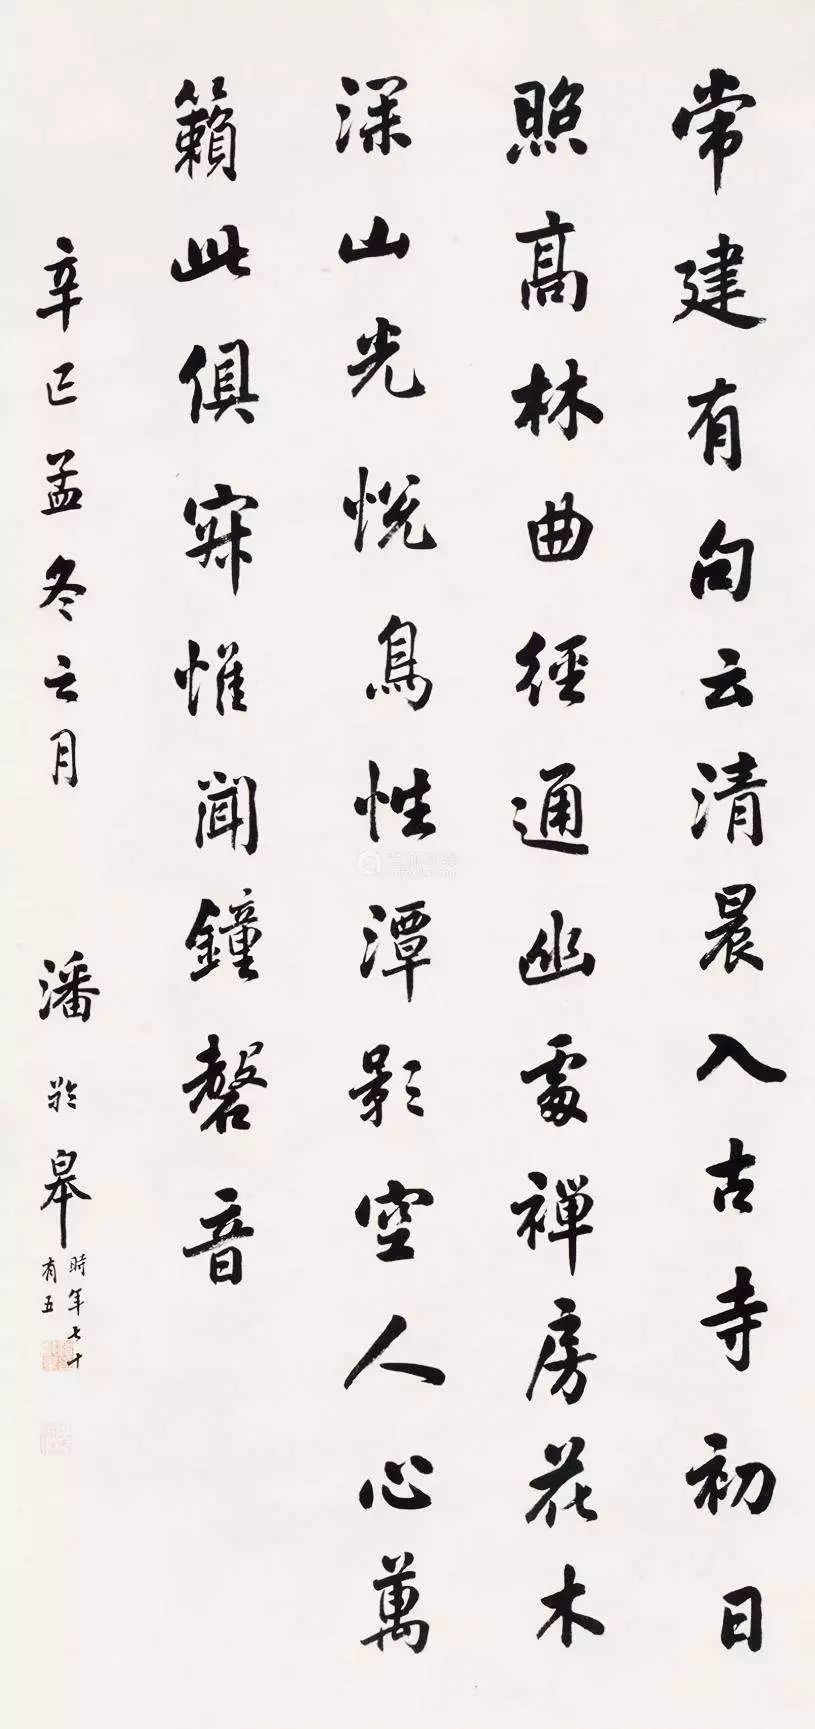 常建有句云清晨入古寺初日
照高林曲徑通幽處禪房花木
深山光悅鳥性潭影空人心萬
籟此俱寂惟聞鐘磬音
辛巳孟冬之月
潘齡皋
時年七十
有五